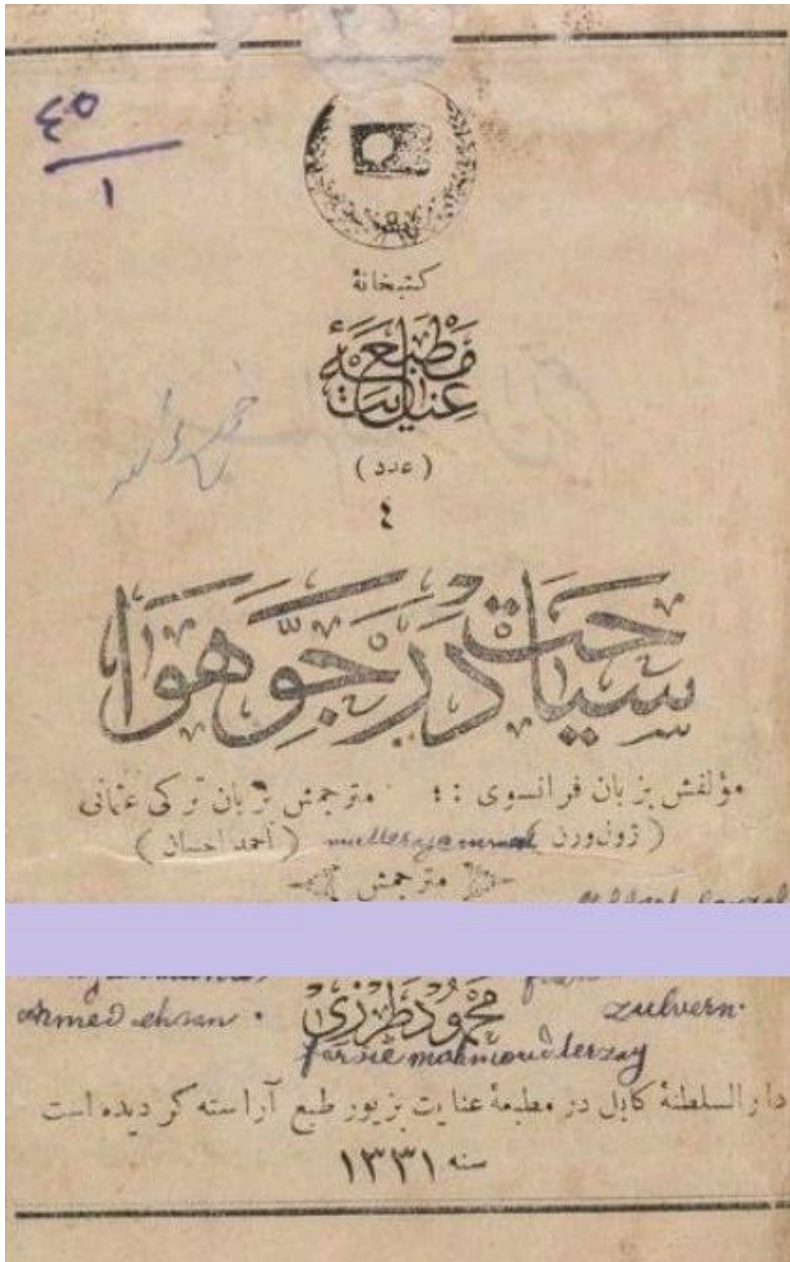 ٤٥
١
كتبخانهٔ
مطبعهٔ
عنایت
( عدد )
٤
سیاحت در جوّ هوا
مؤلفش بزبان فرانسوی : : مترجمش بزبان ترکی عثمانی
( ژول‌ورن ) ( احمد احسان )
مترجمش
محمود طرزی
ahmed ehsan . zulvern.
farsie mahmoud terzay
دار السلطنهٔ کابل در مطبعهٔ عنایت بزیور طبع آراسته کردیده است
سنه ۱۳۳۱